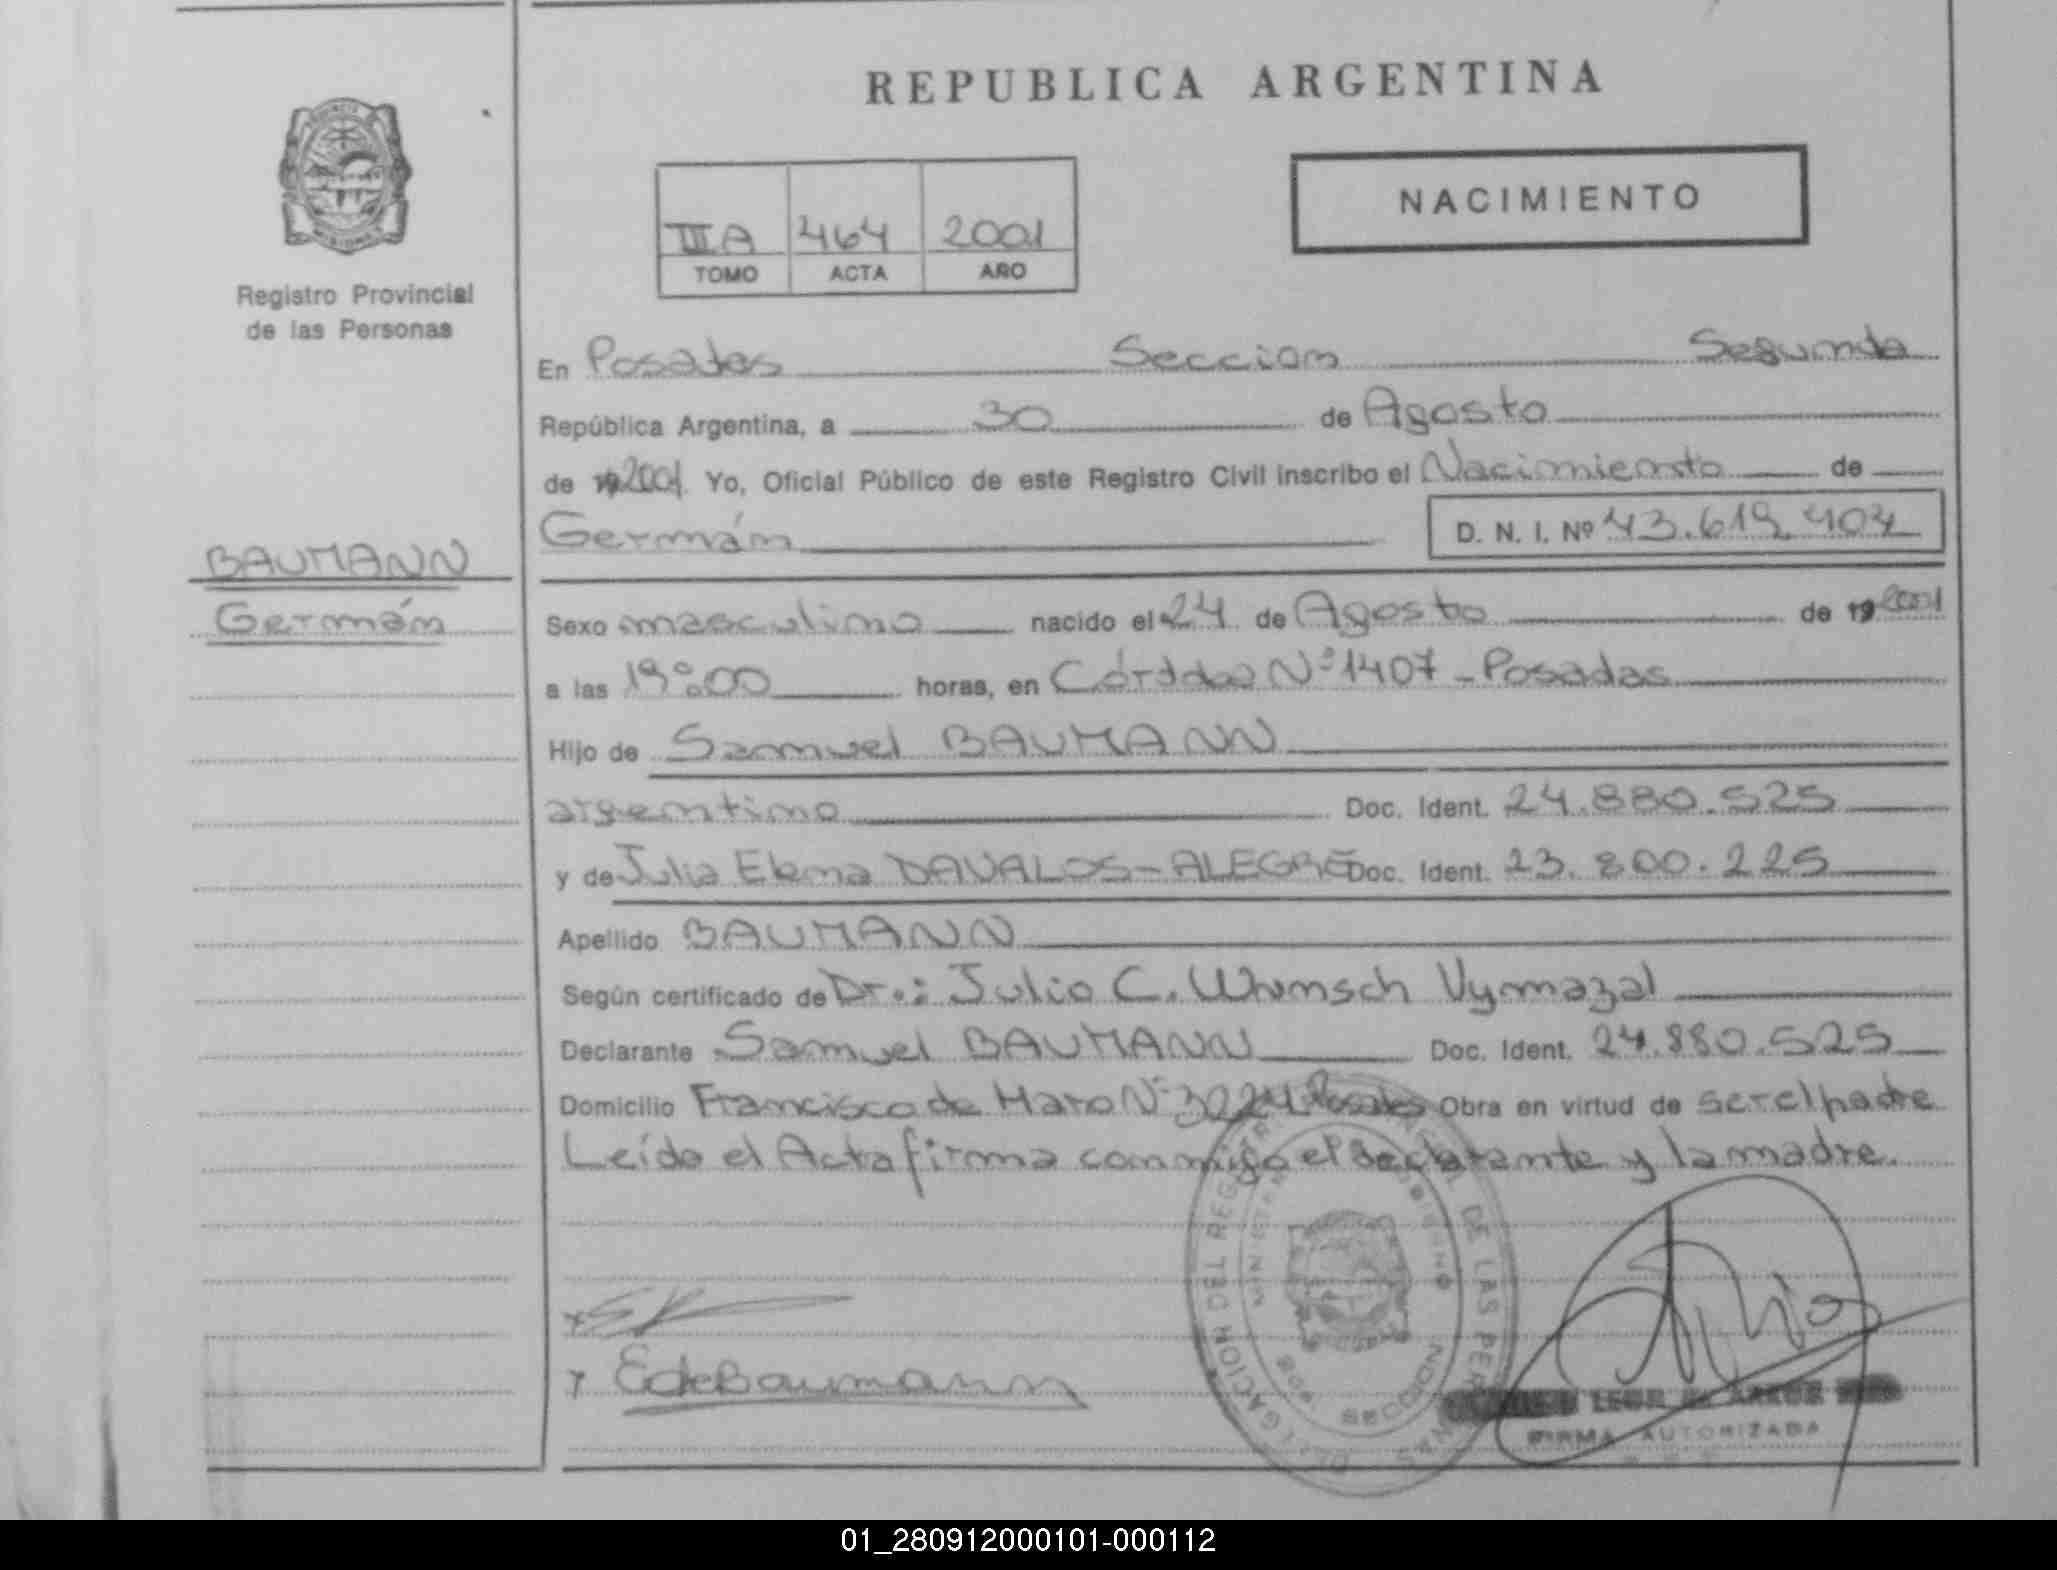 REPUBLICA ARGENTINA
NACIMIENTO
III A 464 2001
TOMO ACTA AÑO
Registro Provincial
de las Personas
BAUMANN
Germán
En Posadas Seccion Segunda
República Argentina, a 30 de Agosto
de 2001. Yo, Oficial Público de este Registro Civil inscribo el Nacimiento de
Germán D. N. I. Nº 43.619.404
Sexo masculino nacido el 24 de Agosto de 19 2001
a las 19:00 horas, en Córdoba Nº 1407 - Posadas
Hijo de Samuel BAUMANN
argentino Doc. Ident. 24.880.525
y de Julia Elena DAVALOS-ALEGRE Doc. Ident. 23.800.225
Apellido BAUMANN
Según certificado de Dr.: Julio C. Wunsch Vymazal
Declarante Samuel BAUMANN Doc. Ident. 24.880.525
Domicilio Francisco de Haro Nº 3224 Posadas Obra en virtud de ser el padre
Leída el Acta firma conmigo el declarante y la madre.
EdeBaumann
DELEGACION DEL REGISTRO DE LAS PERSONAS
SECCION
FIRMA AUTORIZADA
01_280912000101-000112